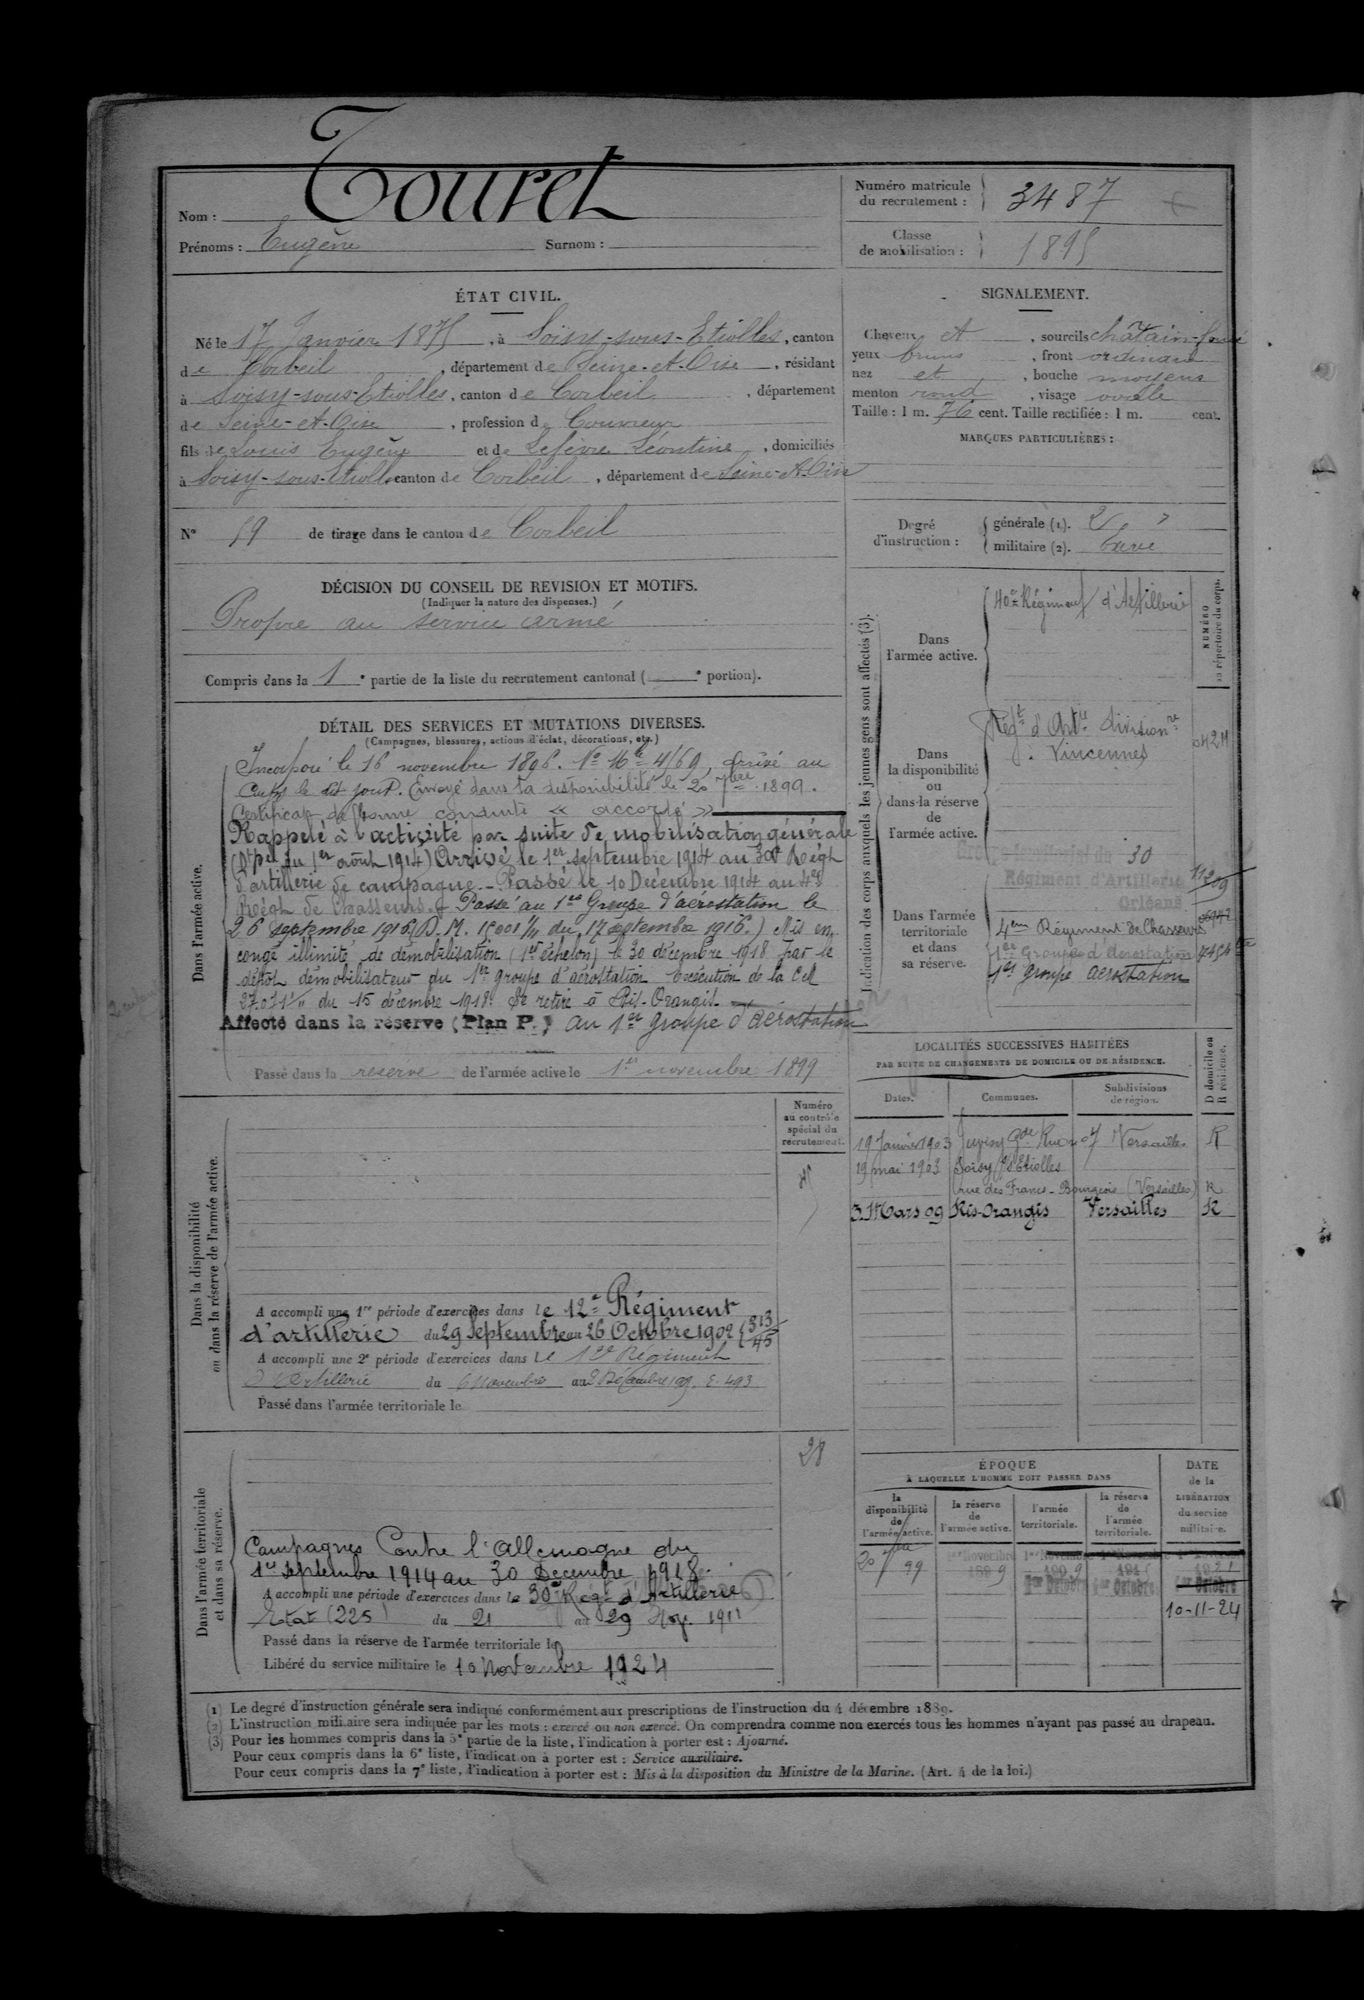 Touret
Nom :
Prénoms : Eugène Surnom :
Numéro matricule
du recrutement : 3487
Classe
de mobilisation : 1895
ÉTAT CIVIL.
Né le 17 Janvier 1875, à Soisy-sous-Etiolles, canton
de Corbeil, département de Seine-et-Oise, résidant
à Soisy-sous-Etiolles, canton de Corbeil, département
de Seine-et-Oise, profession de Couvreur
fils de Louis Eugène et de Lefèvre Léontine, domiciliés
à Soisy-sous-Etiolles canton de Corbeil, département de Seine-et-Oise
N° 59 de tirage dans le canton de Corbeil
SIGNALEMENT.
Cheveux et, sourcils châtain-foncé
yeux bruns, front ordinaire
nez et, bouche moyens
menton rond, visage ovale
Taille : 1 m. 76 cent. Taille rectifiée : 1 m. cent.
MARQUES PARTICULIÈRES :
Degré
d'instruction :
générale (1).
militaire (2). Exercé
DÉCISION DU CONSEIL DE REVISION ET MOTIFS.
(Indiquer la nature des dispenses.)
Propre au service armé
Compris dans la 1e partie de la liste du recrutement cantonal ( e portion).
DÉTAIL DES SERVICES ET MUTATIONS DIVERSES.
(Campagnes, blessures, actions d'éclat, décorations, etc.)
Dans l'armée active.
Incorporé le 16 novembre 1896. No Mle 4169, arrivé au
Corps le dit jour. Envoyé dans la disponibilité le 20 7bre 1899.
Certificat de Bonne conduite « accordé »
Rappelé à l'activité par suite de mobilisation générale
(Dt du 1er août 1914) Arrivé le 1er septembre 1914 au 30e Régt
d'artillerie de campagne. - Passé le 10 Décembre 1914 au 4e
Régt de Chasseurs. Passé au 1er Groupe d'aérostation le
26 septembre 1916 (D. M. 15001 1/11 du 17 septembre 1916.) Mis en
congé illimité de démobilisation (1er échelon) le 30 décembre 1918 par le
dépôt démobilisateur du 1er groupe d'aérostation Exécution de la Cre
du 15 décembre 1918. Se retire à Ris-Orangis
Affecté dans la réserve (Plan P.) au 1er groupe d'aérostation
Passé dans la réserve de l'armée active le 1er novembre 1899
Indication des corps auxquels les jeunes gens sont affectés (3).
NUMÉRO
au répertoire du corps.
Dans
l'armée active.
40e Régiment d'Artillerie
Dans
la disponibilité
ou
dans la réserve
de
l'armée active.
Régt d'Artie division re
Vincennes
Dans l'armée
territoriale
et dans
sa réserve.
Groupe territorial du 30
Régiment d'Artillerie
Orléans
11209
4em Régiment de Chasseurs
1er Groupe d'aérostation
1er groupe aérostation
LOCALITÉS SUCCESSIVES HABITÉES
PAR SUITE DE CHANGEMENTS DE DOMICILE OU DE RÉSIDENCE.
Dates. Communes. Subdivisions
de région.
D domicile ou
R résidence.
19 Janvier 1903 Juvisy Gde Rue 07 Versailles R
19 mai 1903 Soisy s/s Etiolles
rue des Francs-Bourgeois (Versailles) R
3 Mars 09 Ris-Orangis Versailles R
Numéro
au contrôle
spécial du
recrutement.
Dans la disponibilité
ou dans la réserve de l'armée active.
A accompli une 1re période d'exercices dans le 12e Régiment
d'artillerie du 29 Septembre au 26 Octobre 1902 {313/45
A accompli une 2e période d'exercices dans le 12e Régiment
d'Artillerie du 6 Novembre au 3 Décembre 190 . E. 493
Passé dans l'armée territoriale le
28
Dans l'armée territoriale
et dans sa réserve.
Campagnes Contre l'Allemagne du
1er Septembre 1914 au 30 Décembre 1918.
A accompli une période d'exercices dans le 30e Régt d'Artillerie
Etat (225) du 21 au 29 Nov. 1911
Passé dans la réserve de l'armée territoriale le
Libéré du service militaire le 10 Novembre 1924
ÉPOQUE
À LAQUELLE L'HOMME DOIT PASSER DANS
DATE
de la
LIBÉRATION
du service
militaire.
la
disponibilité
de
l'armée active.
la réserve
de
l'armée active.
l'armée
territoriale.
la réserve
de
l'armée
territoriale.
20 7bre 99
1er Novembre 1899
1er Novembre 1909
1er Octobre
1er Novembre
1er Octobre
1921
1er Octobre
10-11-24
(1) Le degré d'instruction générale sera indiqué conformément aux prescriptions de l'instruction du 4 décembre 1889.
(2) L'instruction militaire sera indiquée par les mots : exercé ou non exercé. On comprendra comme non exercés tous les hommes n'ayant pas passé au drapeau.
(3) Pour les hommes compris dans la 5e partie de la liste, l'indication à porter est : Ajourné.
Pour ceux compris dans la 6e liste, l'indication à porter est : Service auxiliaire.
Pour ceux compris dans la 7e liste, l'indication à porter est : Mis à la disposition du Ministre de la Marine. (Art. 4 de la loi.)